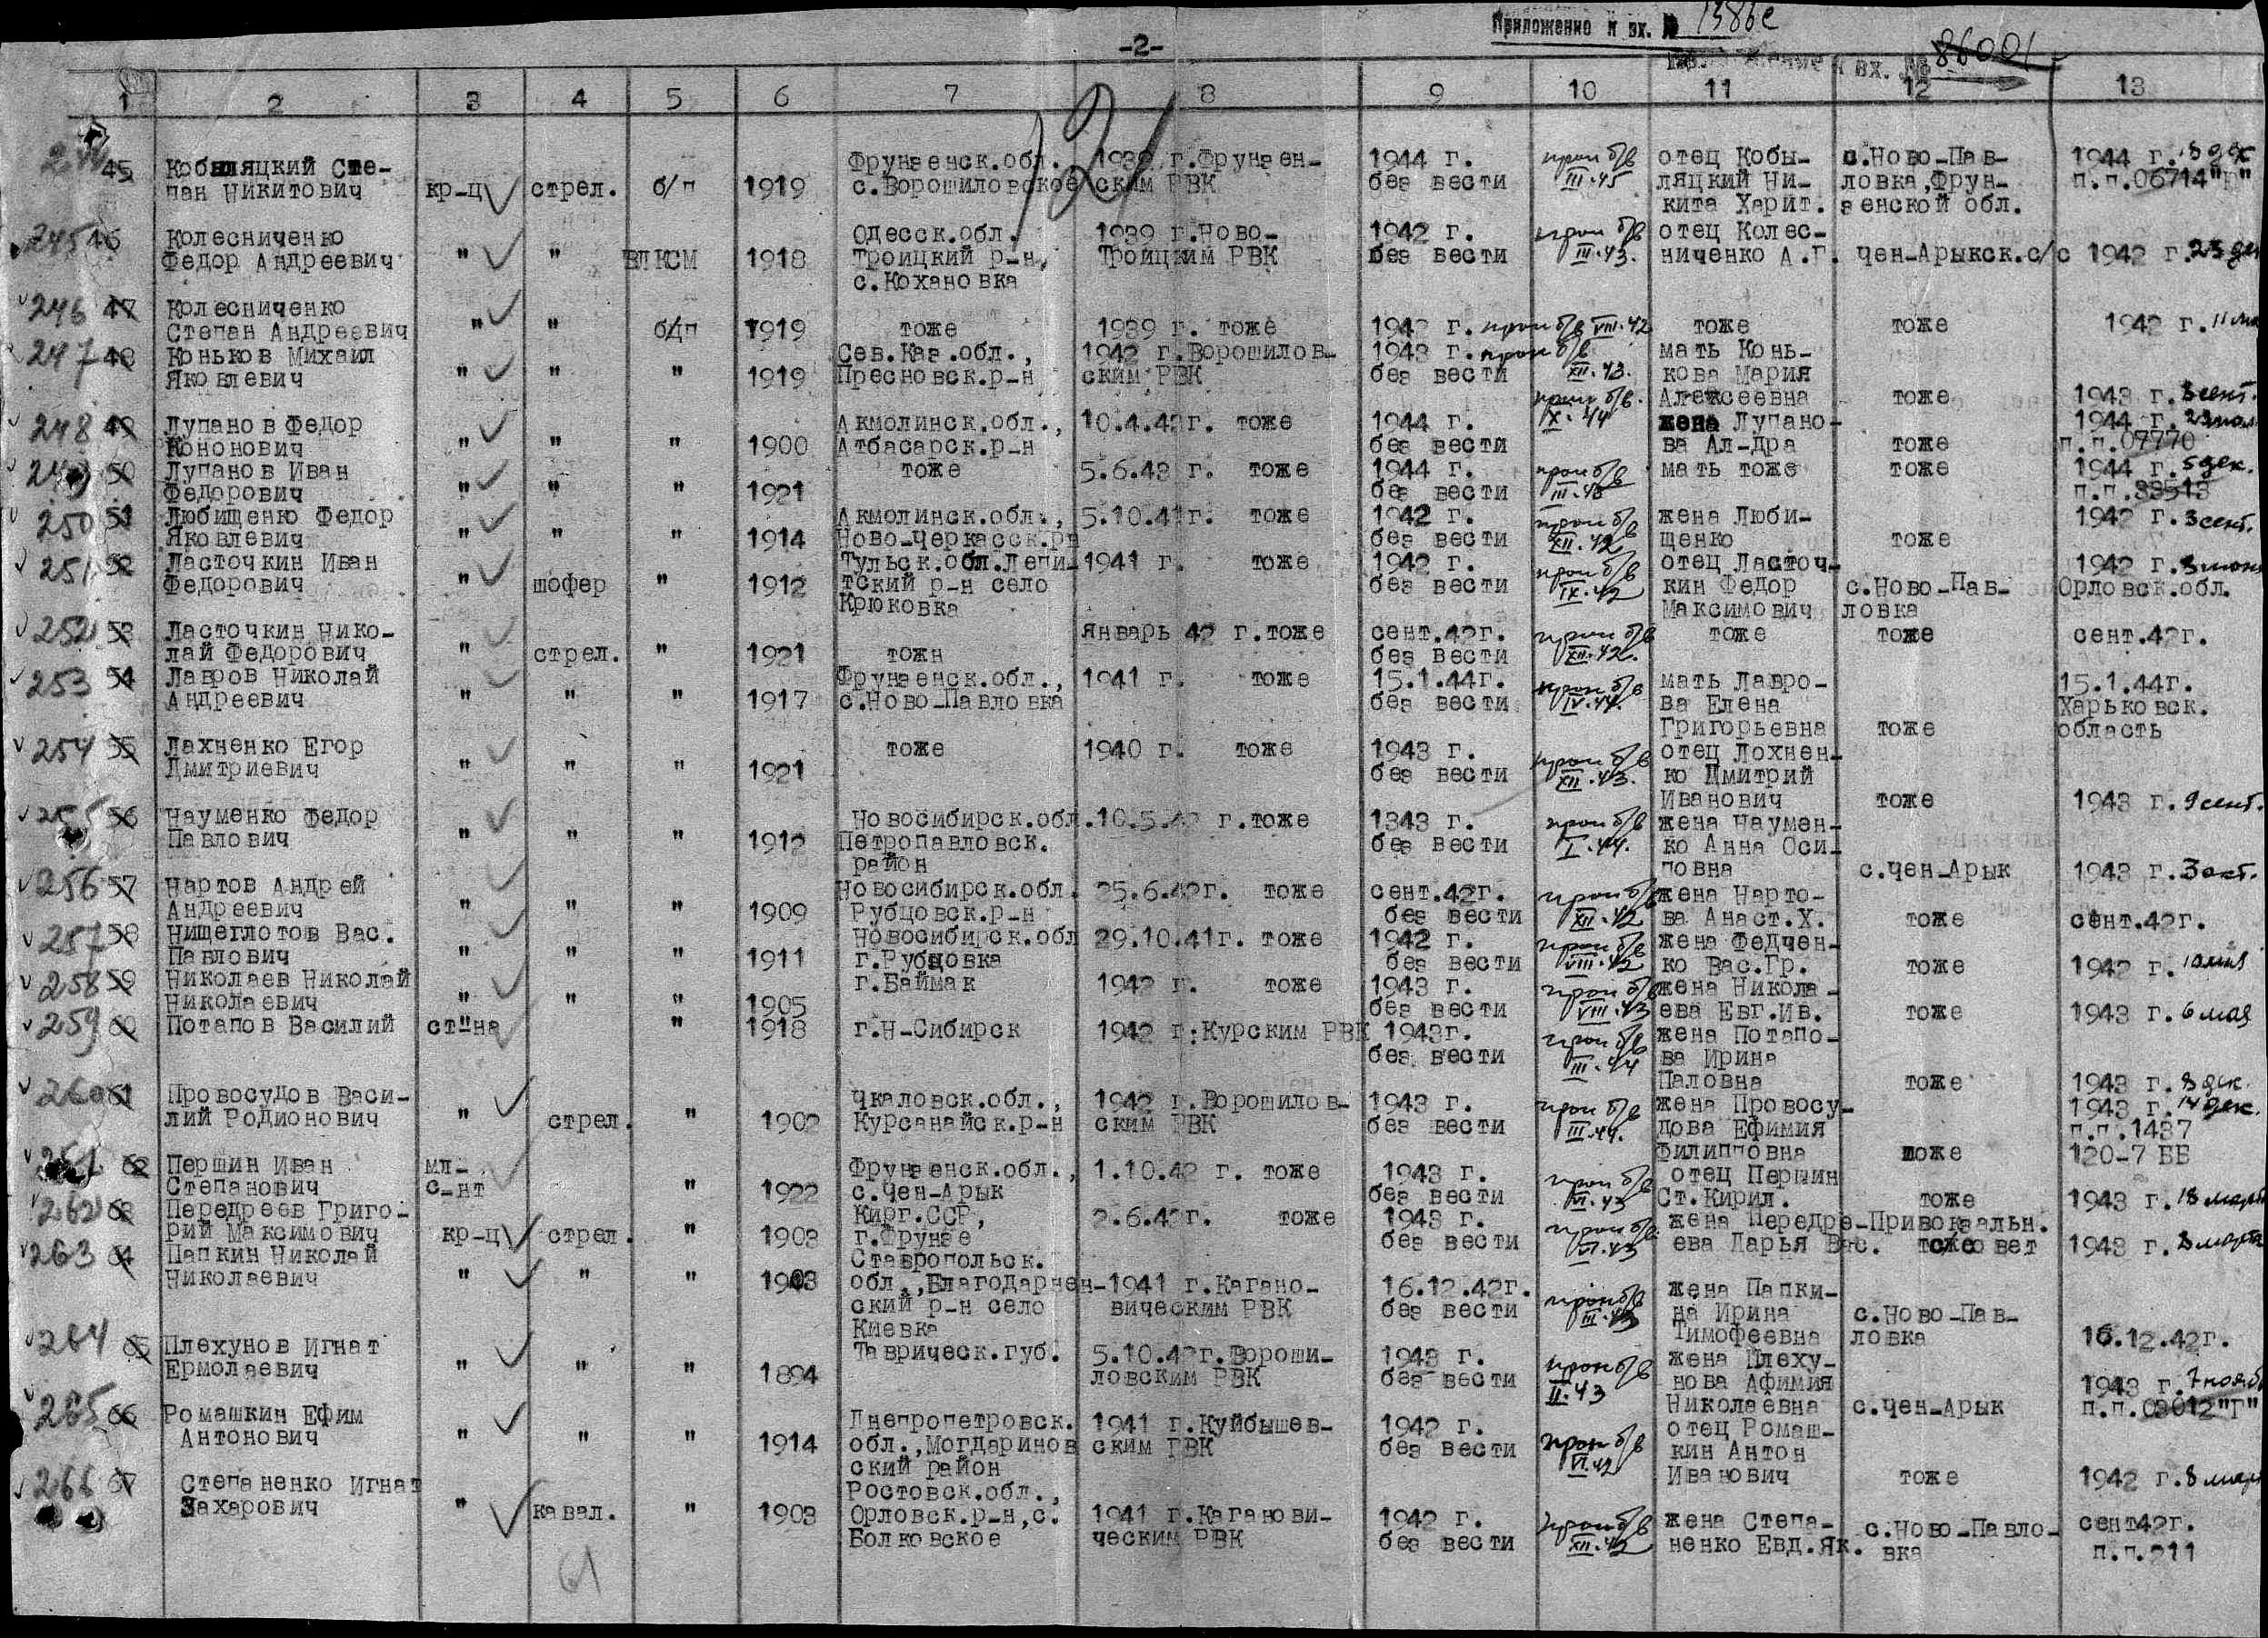 Приложение к вх. № 1386с
-2-
вх. № 86001
1 2 3 4 5 6 7 8 9 10 11 12 13
121
45 Кобыляцкий Сте- Фрунзенск.обл. 1939 г.Фрунзен- 1944 г. проп б/в отец Кобы- с.Ново-Пав- 1944 г.
пан Никитович кр-ц стрел. б/п 1919 с.Ворошиловское ским РВК без вести III.45 ляцкий Ни- ловка,Фрун- п.п.06714"Ю"
кита Харит. зенской обл.
245 46 Колесниченко Одесск.обл. 1939 г.Ново- 1942 г. проп б/в отец Колес-
Федор Андреевич " " ВЛКСМ 1918 Троицкий р-н, Троицким РВК без вести III.43. ниченко А.Г. чен-Арыкск.с/с 1942 г. 23 дек
с.Кохановка
246 47 Колесниченко
Степан Андреевич " " б/п 1919 тоже 1939 г. тоже 1942 г. проп б/в VIII.42 тоже тоже 1942 г. 11
247 48 Коньков Михаил Сев.Каз.обл., 1942 г.Ворошилов- 1943 г. проп б/в мать Конь-
Яковлевич " " " 1919 Пресновск.р-н ским РВК без вести XII.43. кова Мария
Алексеевна тоже 1943 г. 3 сент.
248 49 Лупанов Федор Акмолинск.обл., 10.4.42г. тоже 1944 г. проп б/в. X.44 жена Лупано- 1944 г. 23
Кононович " " " 1900 Атбасарск.р-н без вести ва Ал-дра тоже п.п.07770
249 50 Лупанов Иван тоже 5.6.43 г. тоже 1944 г. проп б/в мать тоже тоже 1944 г. 5 дек.
Федорович " " " 1921 без вести III.45 п.п.33513
250 51 Любищенко Федор Акмолинск.обл., 5.10.41г. тоже 1942 г. проп б/в жена Люби- 1942 г. 3 сент.
Яковлевич " " " 1914 Ново-Черкасск.рн без вести XII.42 щенко тоже
251 52 Ласточкин Иван Тульск.обл.Лепи- 1941 г. тоже 1942 г. проп б/в отец Ласточ- 1942 г. 3 июня
Федорович " шофер " 1912 тский р-н село без вести IX.42 кин Федор с.Ново-Пав- Орловск.обл.
Крюковка Максимович ловка
252 53 Ласточкин Нико- январь 42 г.тоже сент.42г. проп б/в тоже тоже сент.42г.
лай Федорович " стрел. " 1921 тожн без вести XII.42.
253 54 Лавров Николай Фрунзенск.обл., 1941 г. тоже 15.1.44г. проп б/в мать Лавро- 15.1.44г.
Андреевич " " " 1917 с.Ново-Павловка без вести IV.44. ва Елена Харьковск.
Григорьевна тоже область
254 55 Лахненко Егор тоже 1940 г. тоже 1943 г. проп б/в отец Лохнен-
Дмитриевич " " " 1921 без вести XII.43. ко Дмитрий
Иванович тоже 1943 г. 9 сент.
255 56 Науменко Федор Новосибирск.обл. 10.5.42 г.тоже 1343 г. проп б/в жена Наумен-
Павлович " " " 1912 Петропавловск. без вести I.44. ко Анна Оси-
район повна с.чен-Арык 1943 г. 3 окт.
256 57 Нартов Андрей Новосибирск.обл. 25.6.42г. тоже сент.42г. проп б/в жена Нарто-
Андреевич " " " 1909 Рубцовск.р-н без вести XII.42 ва Анаст.Х. тоже сент.42г.
257 58 Нищеглотов Вас. Новосибирск.обл 29.10.41г. тоже 1942 г. проп б/в жена Федчен-
Павлович " " " 1911 г.Рубцовка без вести VIII.42 ко Вас.Гр. тоже 1942 г.
258 59 Николаев Николай г.Баймак 1942 г. тоже 1943 г. проп б/в жена Никола-
Николаевич " " " 1905 без вести VIII.43 ева Евг.Ив. тоже 1943 г. 6 мая
259 60 Потапов Василий ст"на " 1918 г.Н-Сибирск 1942 г.Курским РВК 1943г. проп б/в жена Потапо-
без вести III.44 ва Ирина
Паловна тоже 1943 г. 8 дек.
260 61 Провосудов Васи- Чкаловск.обл., 1942 г.Ворошилов- 1943 г. проп б/в жена Провосу- 1943 г. 14 дек.
лий Родионович " стрел. " 1902 Курсанайск.р-н ским РВК без вести III.44. дова Ефимия п.п.1437
Филипповна тоже 120-7 ББ
261 62 Першин Иван мл- Фрунзенск.обл., 1.10.42 г. тоже 1943 г. проп б/в отец Першин
Степанович с-нт " 1922 с.Чен-Арык без вести VI.43 Ст.Кирил. тоже 1943 г. 18 марта
262 63 Передреев Григо- Кирг.ССР, 2.6.42г. тоже 1943 г. проп б/в жена Передре- Привокзальн.
рий Максимович кр-ц стрел. " 1903 г.Фрунзе без вести VI.43 ева Дарья Вас. совет 1943 г. 8 марта
263 64 Папкин Николай Ставропольск.
Николаевич " " " 1903 обл.,Благодарнен- 1941 г.Кагано- 16.12.42г. проп б/в жена Папки-
ский р-н село вическим РВК без вести III.43 на Ирина с.Ново-Пав-
Киевка Тимофеевна ловка 16.12.42г.
264 65 Плехунов Игнат Таврическ.губ. 5.10.42г.Вороши- 1943 г. проп б/в жена Плеху-
Ермолаевич " " " 1894 ловским РВК без вести II.43 нова Афимия 1943 г. 7 нояб
Николаевна с.чен-Арык п.п.03012"Г"
265 66 Ромашкин Ефим Днепропетровск. 1941 г.Куйбышев- 1942 г. проп б/в отец Ромаш-
Антонович " " " 1914 обл.,Могдаринов ским РВК без вести VI.42 кин Антон
ский район Иванович тоже 1942 г. 8 мар
266 67 Степаненко Игнат Ростовск.обл.,
Захарович " кавал. " 1903 Орловск.р-н,с. 1941 г.Каганови- 1942 г. проп б/в жена Степа- с.Ново-Павло- сент42г.
Болковское ческим РВК без вести XII.42 ненко Евд.Як. вка п.п.211
61